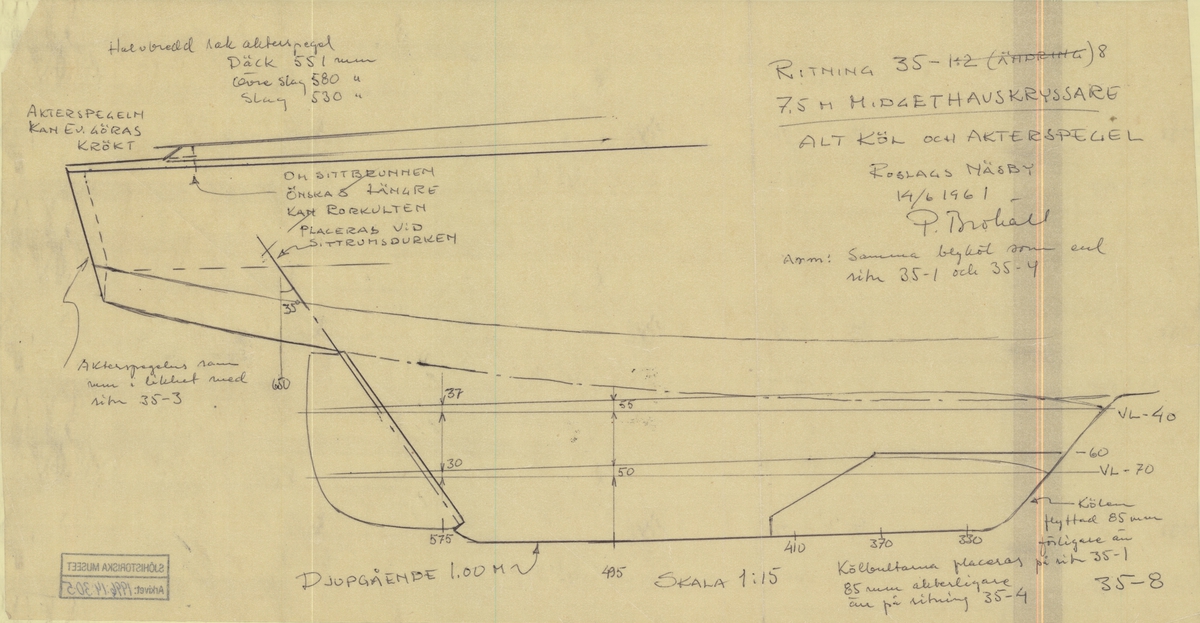 Halvbredd rak akterspegel
Däck 551 mm
Övre slag 580 "
Slag 530 "
AKTERSPEGELN
KAN EV. GÖRAS
KRÖKT
OM SITTBRUNNEN
ÖNSKAS LÄNGRE
KAN RORKULTEN
PLACERAS VID
SITTRUMSDURKEN
RITNING 35-1+2 (ÄNDRING) 8
7,5 M MIDGETHAVSKRYSSARE
ALT KÖL OCH AKTERSPEGEL
ROSLAGS NÄSBY
14/6 1961
P. Brohäll
Anm: Samma blyköl som enl
ritn 35-1 och 35-4
35°
650
Akterspegelns ram
i likhet med
ritn 35-3
37
55
30
50
VL-40
-60
VL-70
575
495
410
370
330
Kölen
flyttad 85 mm
förligare än
på ritn 35-1
Kölbultarna placeras
85 mm akterligare
än på ritning 35-4
35-8
DJUPGÅENDE 1.00 M
SKALA 1:15
SJÖHISTORISKA MUSEET
Arkivet: